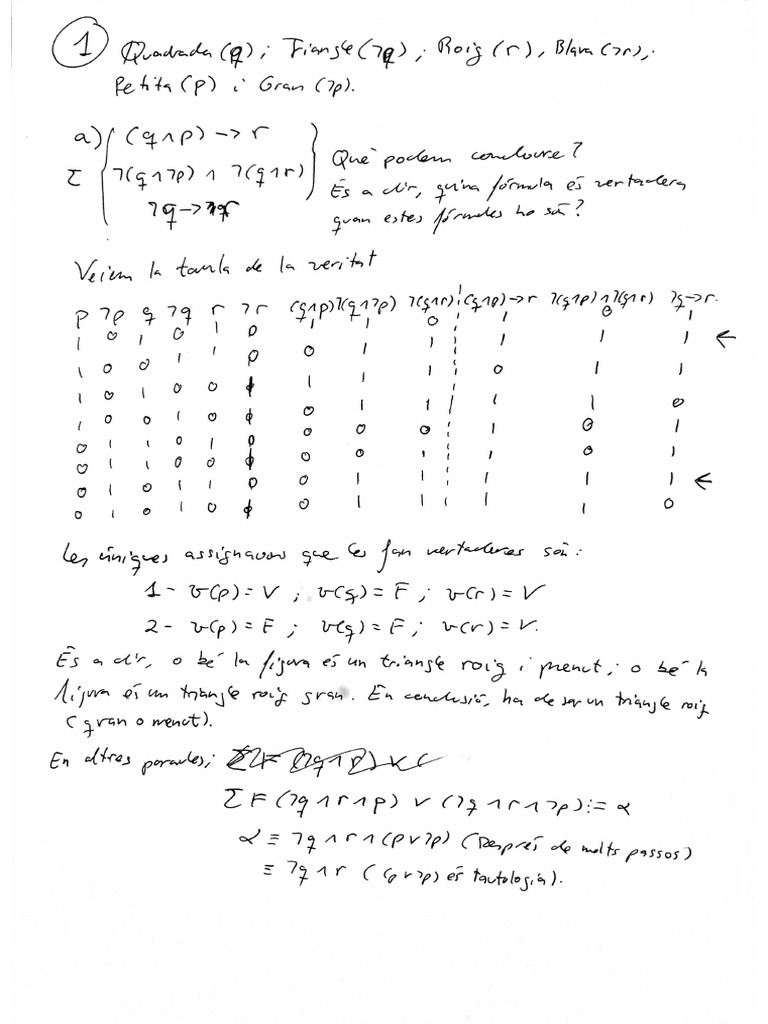 1 Quadrada (q); Triangle (¬q); Roig (r), Blava (¬r);
Petita (p) i Gran (¬p).
a) (q∧p) → r
Σ ¬(q∧¬p) ∧ ¬(q∧r)
¬q → r
Què podem concloure?
És a dir, quina fórmula és vertadera
quan estes fórmules ho són?
Veiem la taula de la veritat
p ¬p q ¬q r ¬r (q∧p) ¬(q∧¬p) ¬(q∧r) (q∧p)→r ¬(q∧p)∧¬(q∧r) ¬q→r.
1 0 1 0 1 0 1 1 0 1 0 1
1 0 0 1 1 0 0 1 1 1 1 1 ←
1 0 1 0 0 1 1 1 0 1 1
1 0 0 1 0 0 1 1 1 1 0
0 1 1 0 1 0 0 0 0 1 0 1
0 1 1 0 0 0 0 1 1 0 1
0 1 0 1 1 0 0 1 1 1 1 1 ←
0 1 0 1 0 0 1 1 1 1 0
Les úniques assignacions que les fan vertaderes són:
1 - v(p) = V ; v(q) = F ; v(r) = V
2 - v(p) = F ; v(q) = F ; v(r) = V.
És a dir, o bé la figura és un triangle roig i menut; o bé la
figura és un triangle roig gran. En conclusió, ha de ser un triangle roig
(gran o menut).
En altres paraules;
Σ ⊨ (¬q ∧ r ∧ p) ∨ (¬q ∧ r ∧ ¬p) := α
α ≡ ¬q ∧ r ∧ (p ∨ ¬p) (Després de molts passos)
≡ ¬q ∧ r ((p ∨ ¬p) és tautologia).